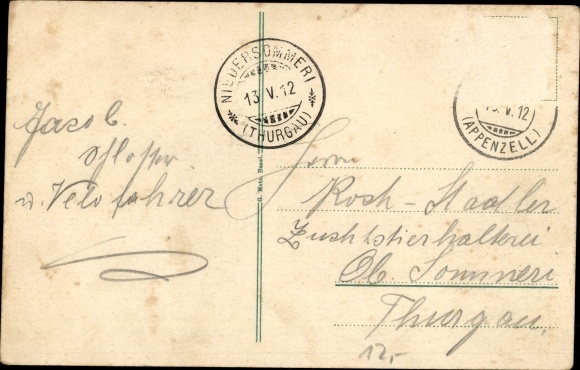 Jacob
Schlosser
u. Velofahrer
NIEDERSOMMERI
13.V.12
(THURGAU)
G. Metz, Basel.
V.12
(APPENZELL)
Herrn
Koch-Staaler
Zuchtstierhalterei
Ob. Sommeri
Thurgau.
12.-